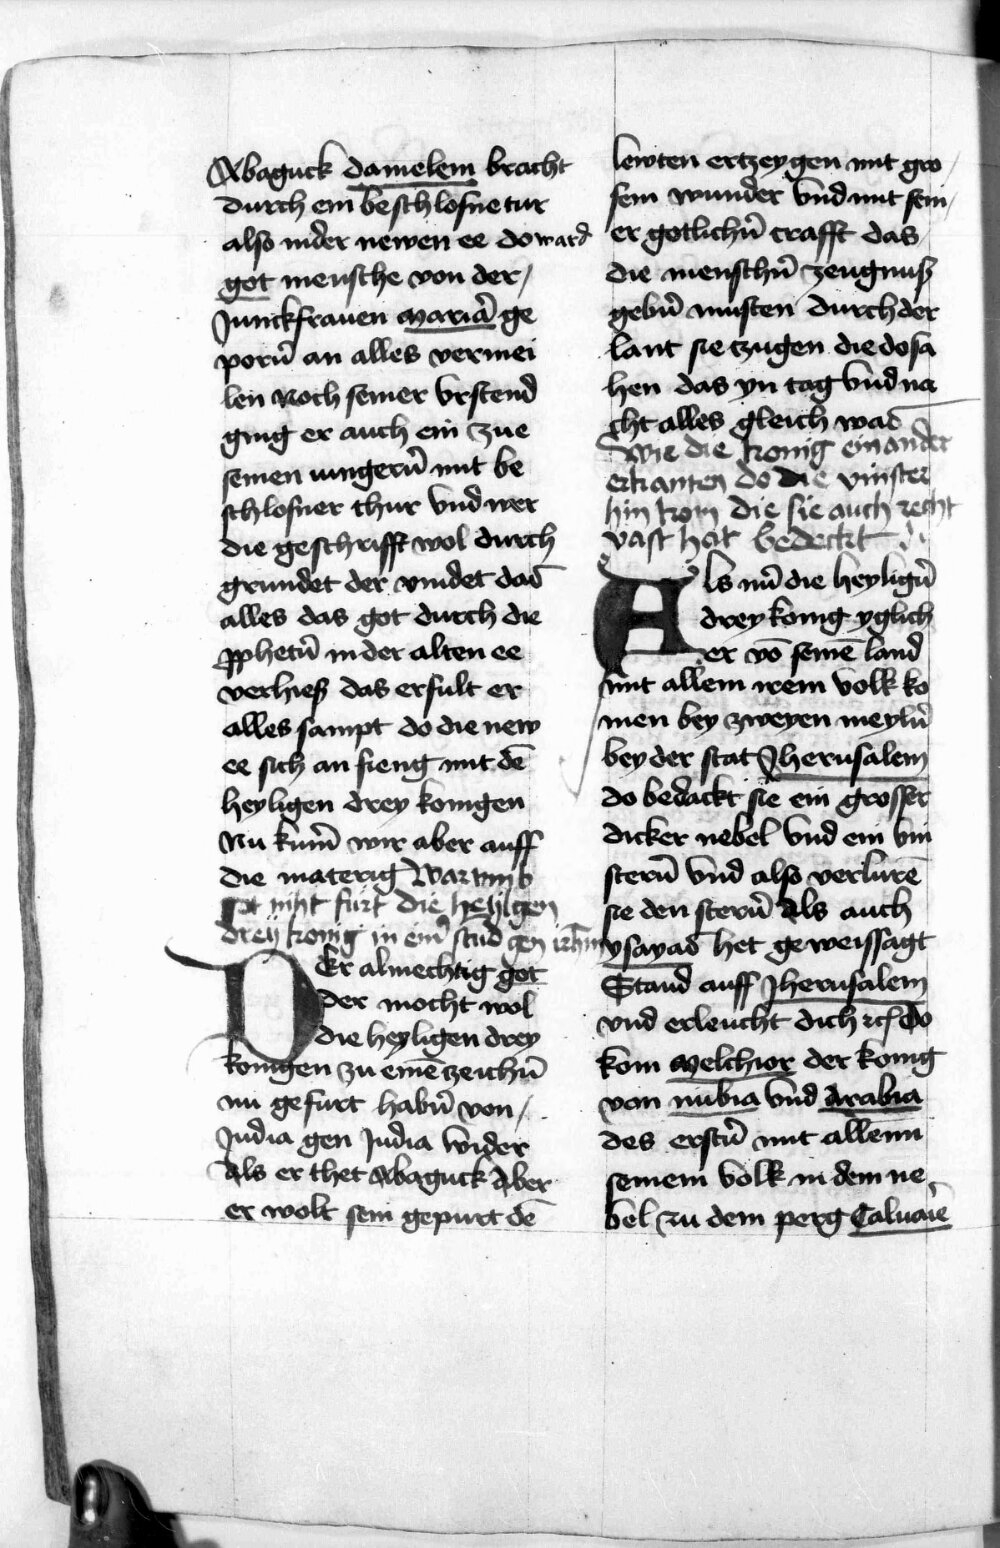 Abaguck danielem bracht
durch ein beschlosne tur
also in der newen ee do ward
got mensche von der /
Junckfrauen mariā ge
porn̄ an alles vermei
len Noch seiner vrstend
ging er auch ein zue
seinen iungern̄ mit be
schlosner thur vnd wer
die geschrifft wol durch
grundet der vindet das
alles das got durch die
ꝓphetn̄ in der alten ee
verhieß das erfult er
alles sampt do die new
ee sich an fieng mit dē
heyligen drey konigen
Nu kum̄ wir aber auff
die materig Warumb
got niht furt die heyligen
dreij konig in einer stund gen irhm̄
DEr almechtig got
der mocht wol
die heyligen drey
konigen zu einē zeichn̄
nu gefurt habn̄ von /
Judia gen Judia wider
Als er thet Abaguck Aber
er wolt sein gepurt dē
lewten ertzeygen mit gro /
sem wunder vnd mit sein /
er gotlichn̄ crafft das
die menschn̄ zeugnuß
gebn̄ musten durch der
lant sie tzugen die do sa
hen das yn tag vnd na
cht alles gleich was
Wie die konig ein ander
erkanten do die vinster
hin kom die sie auch recht
vast hat bedeckt
Als nu die heylign̄
drey konig yglich
er vō seinē land
mit allem irem volk ko
men bey zweyen meyln̄
bey der stat Jherusalem
do bedackt sie ein grosser
dicker nebel vnd ein vin
stern̄ vnd also verlurē
sie den stern̄ Als auch
ysayas het geweissagt
Stand auff Jherusalem
vnd erleucht dich ⁊c̄ Do
kom melchior der konig
von nubia vnd Arabia
des erstn̄ mit allem
seinem volk in dem ne
bel zu dem perg Caluarie